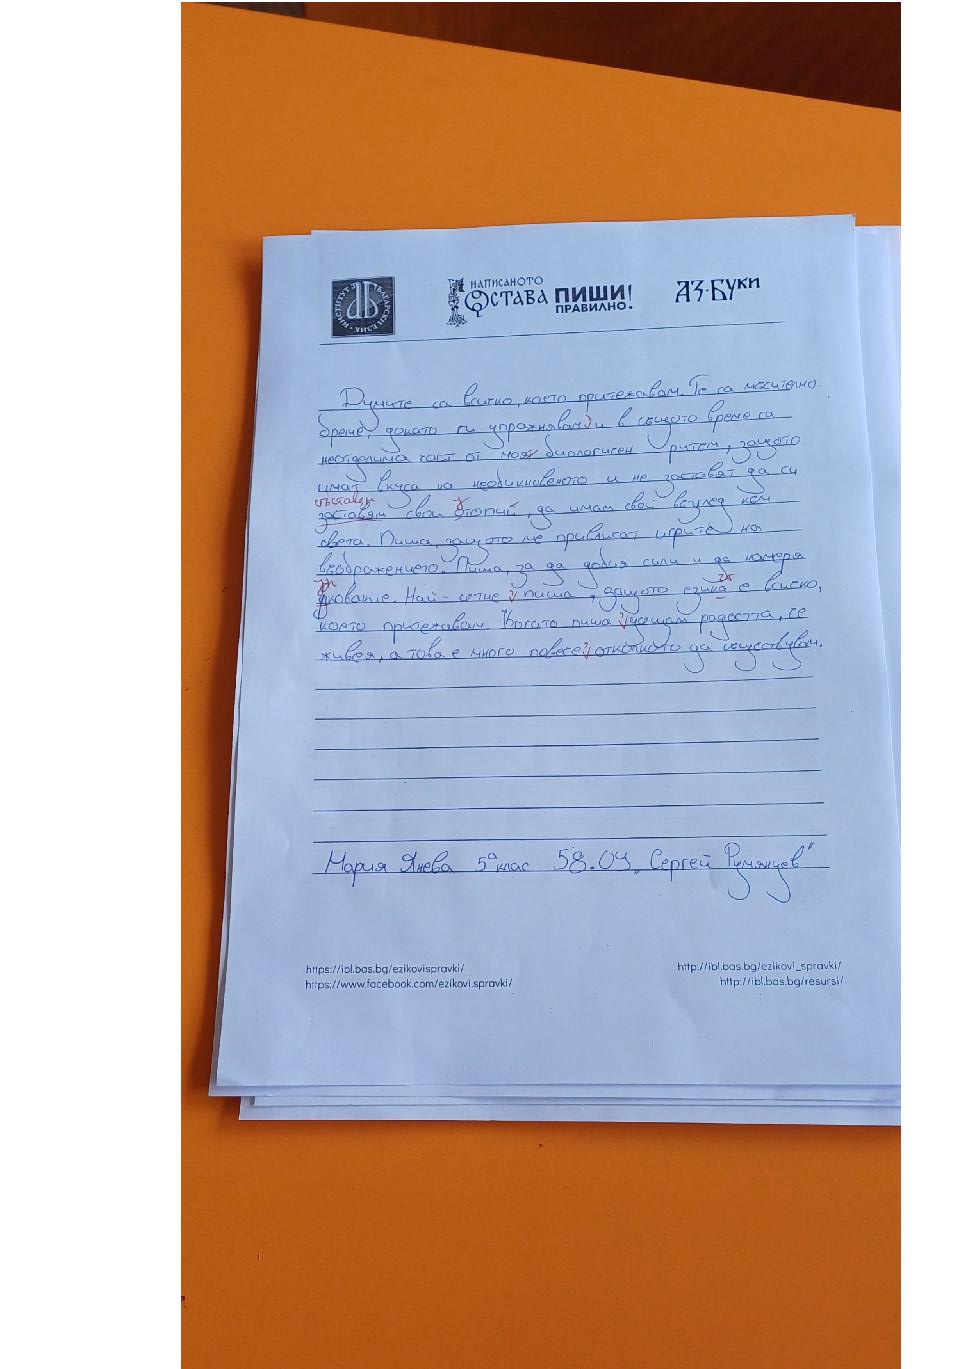 ИНСТИТУТ ЗА БЪЛГАРСКИ ЕЗИК
НАПИСАНОТО ОСТАВА ПИШИ ПРАВИЛНО!
АЗ·БУКИ
Думите са всичко, което притежавам. Те са мъчително
бреме, докато ги упражнявам, и в същото време са
неотделима част от моя биологичен ритъм, защото
имат вкуса на необикновеното и ме заставят да си
съставям
заставям свои отопии, да имам свой възглед към
света. Пиша, защото ме привличат игрите на
въображението. Пиша, за да добия сили и да намеря
упование. Най-сетне, пиша, защото езика е всичко,
което притежавам. Когато пиша, усещам радостта, че
живея, а това е много повече, отколкото да съществувам.
Мария Янева 5 а клас 58. ОУ „Сергей Румянцев"
https://ibl.bas.bg/ezikovispravki/
https://www.facebook.com/ezikovi.spravki/
http://ibl.bas.bg/ezikovi_spravki/
http://ibl.bas.bg/resursi/